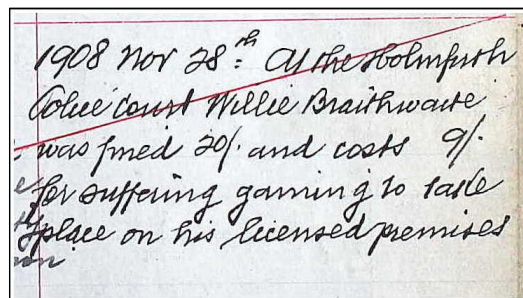 1908 Nov 28th: At the Holmfirth
Police Court Willie Braithwaite
was fined 20/- and costs 9/-
for suffering gaming to take
place on his licensed premises